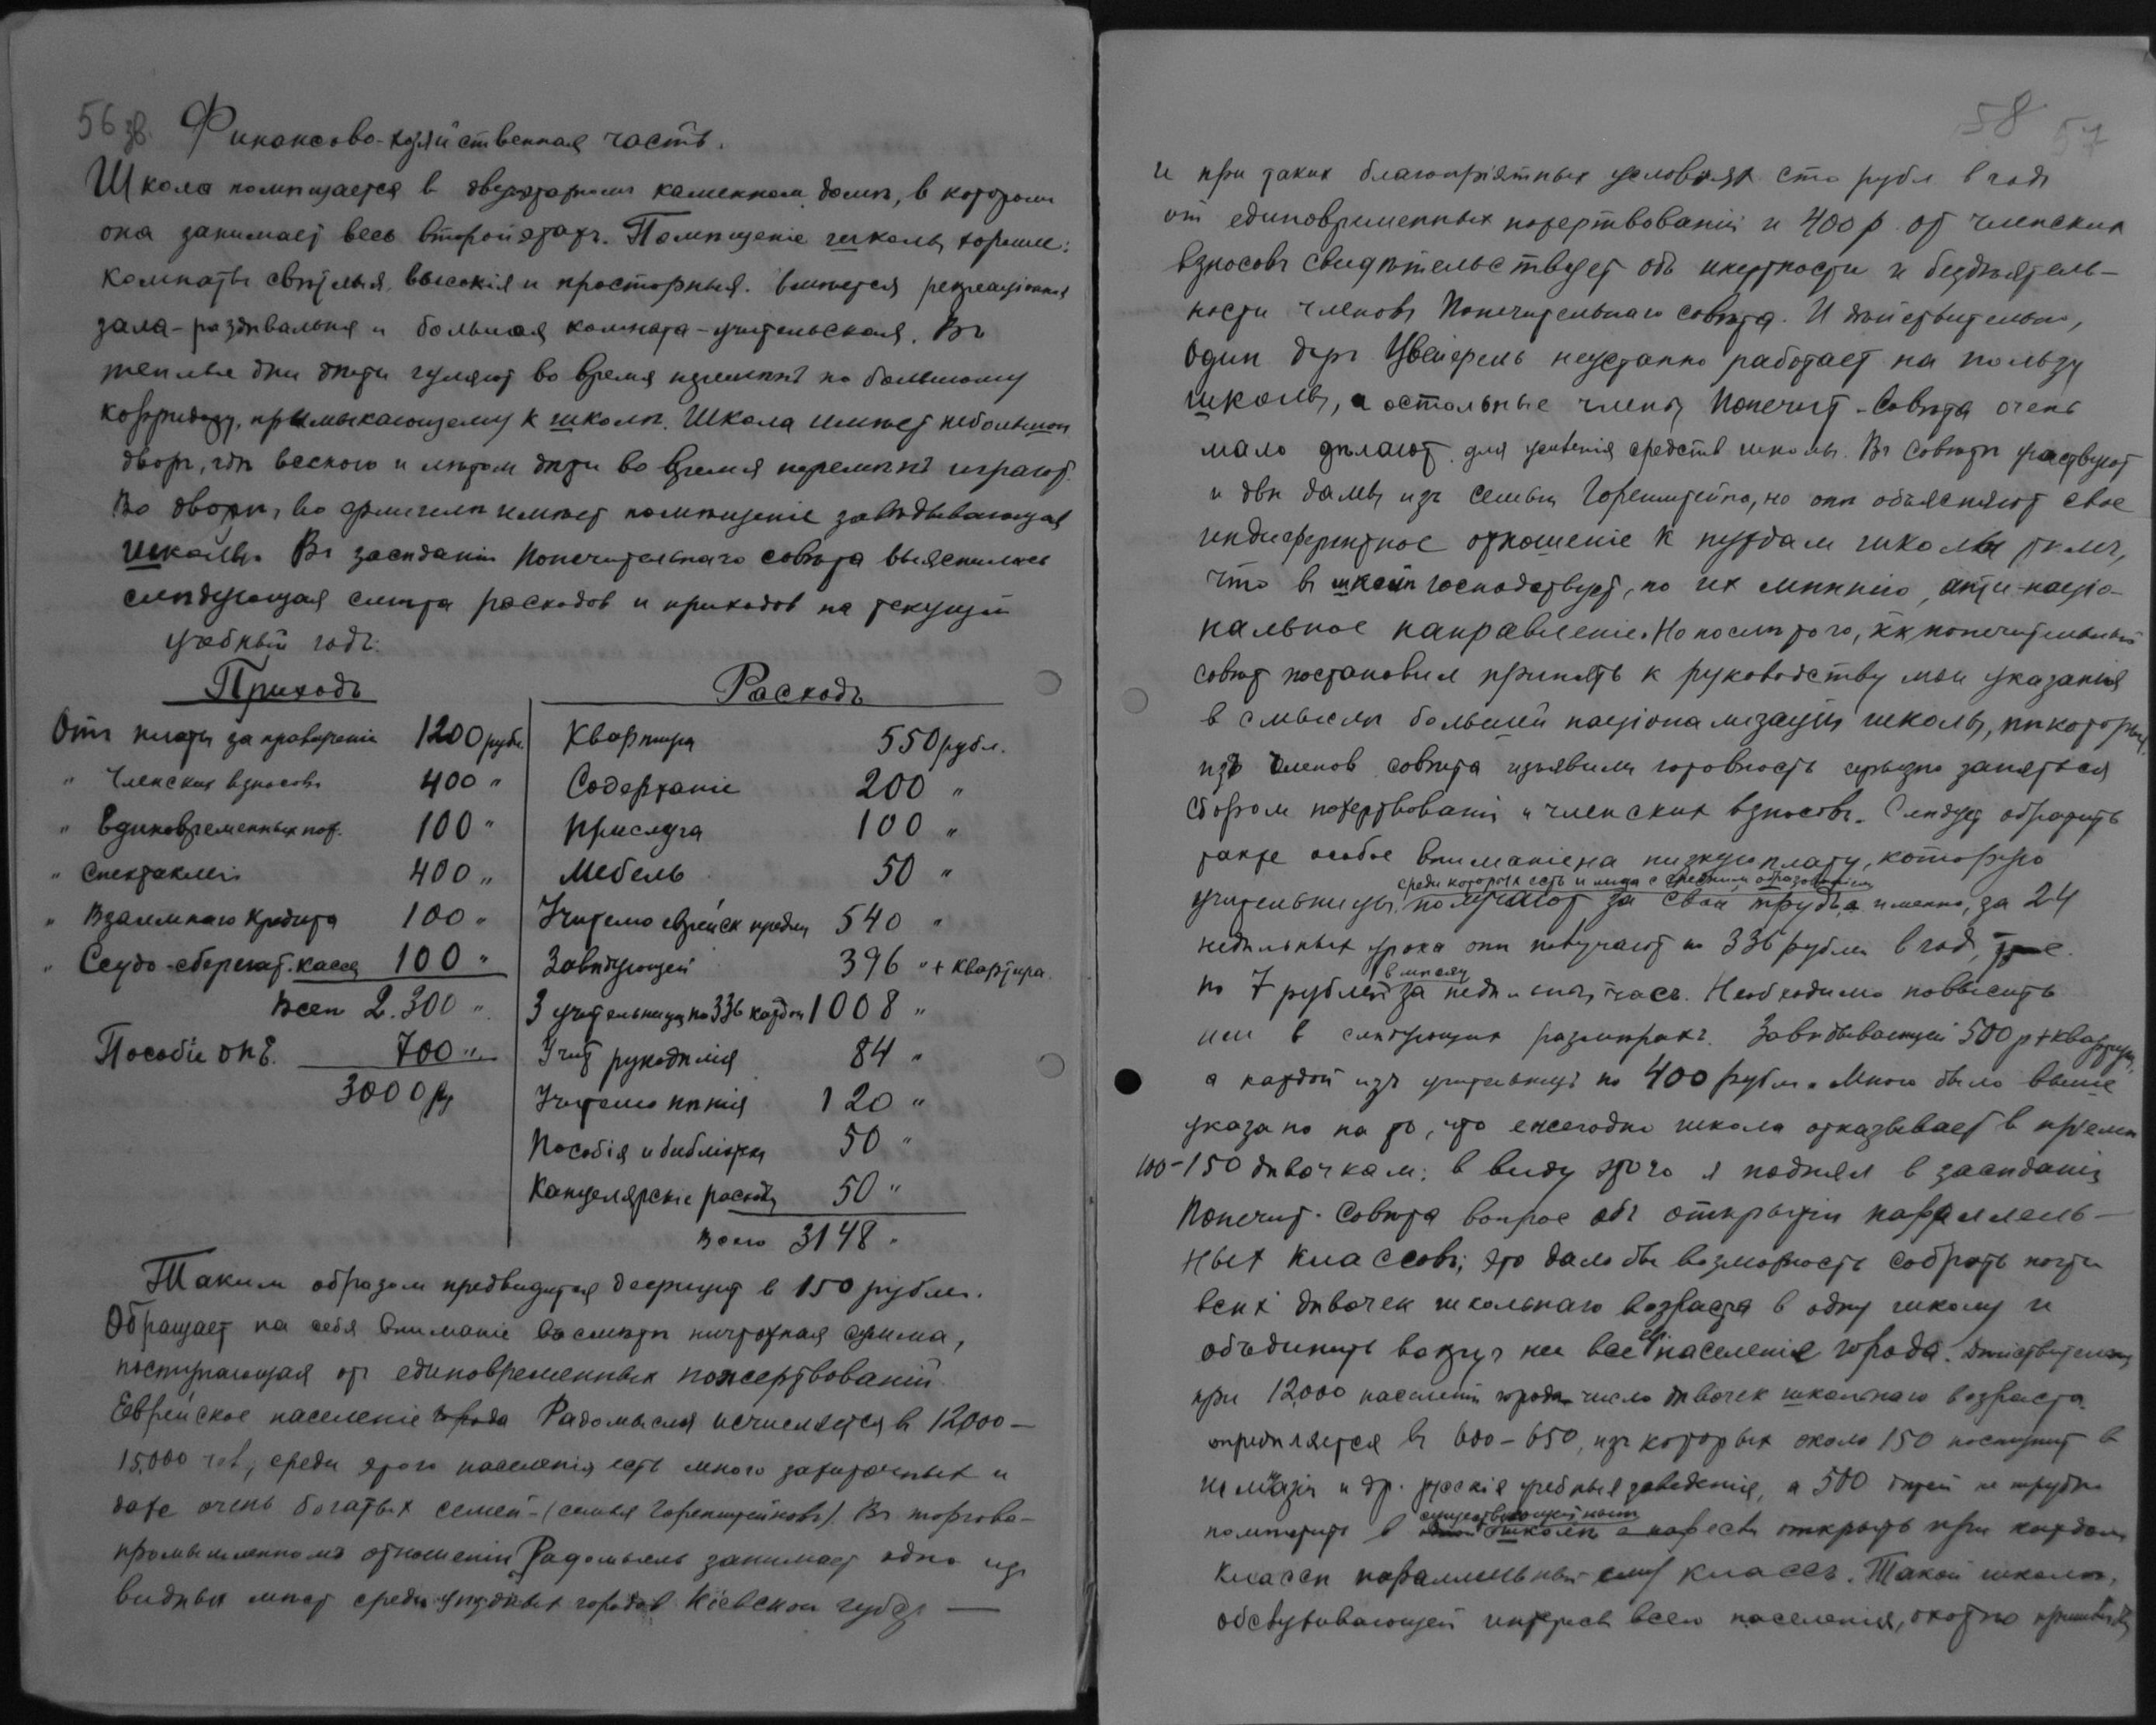 56 зв. Финансово-хозяйственная часть.
Школа помѣщается в двухэтажном каменном домѣ, в котором
она занимает весь второй этажъ. Помѣщеніе школы хорошее:
комнаты свѣтлыя, высокія и просторныя. Имѣется рекреаціонная
зала-раздѣвальня и большая комната-учительская. Въ
теплые дни дѣти гуляют во время перемѣнъ по большому
корридору, примыкающему к школѣ. Школа имѣет небольшой
дворъ, гдѣ весною и лѣтом дѣти во время перемѣнъ играют.
Во дворѣ, во флигелѣ имѣет помѣщеніе завѣдывающая
школы. Въ засѣданіи Попечительнаго совѣта выяснилась
слѣдующая смѣта расходов и приходов на текущій
учебный годъ:
Приходъ
Расходъ
Отъ платы за правоученіе 1200 рубл.
Квартира 550 рубл.
" Членских взносовъ 400 "
Содержаніе 200 "
" Единовременных пож. 100 "
Прислуга 100 "
" Спектаклей 400 "
Мебель 50 "
" Взаимнаго кредита 100 "
Учителю еврейск предм 540 "
" Ссудо-сберегат. касса 100 "
Завѣдующей 396 " + квартира.
Всего 2.300 "
3 учительницы по 336 каждой 1008 "
Пособіе ОПЕ. 700 "
Учит рукодѣлія 84 "
3000 р
Учителю пѣнія 120 "
Пособія и библіотека 50 "
Канцелярскіе расходы 50 "
Всего 3148 "
Таким образом предвидится дефицит в 150 рублей.
Обращает на себя вниманіе въ смѣтѣ ничтожная сумма,
поступающая от единовременных пожертвованій.
Еврейское населеніе города Радомысля исчисляется въ 12,000 —
15,000 чел, среди этого населенія есть много зажиточных и
даже очень богатых семей - (семья Горенштейновъ). Въ торгово-
промышленномъ отношеніи Радомысль занимает одно из
видных мѣст среди уѣздных городов Кіевской губ. —
58 57
и при таких благопріятных условіях сто рубл в годъ
от единовременных пожертвованій и 400 р. от членских
взносовъ свидѣтельствует объ инертности и бездѣятель-
ности членовъ Попечительнаго совѣта. И дѣйствительно,
Один д-ръ Цвейфель неустанно работает на пользу
школы, а остальные члены Попечит. Совѣта очень
мало дѣлают для усиленія средств школы. Въ Совѣтѣ участвуют
и двѣ дамы изъ семьи Горенштейна, но онѣ объясняют свое
индиферентное отношеніе к нуждам школы тѣмъ,
что в школѣ господствует, по их мнѣнію, анти-націо-
нальное направленіе. Но послѣ того, кк попечительный
совѣт постановил принять к руководству мои указанія
в смыслѣ большей націонализаціи школы, нѣкоторые
изъ членов совѣта изъявили готовность серьезно заняться
сбором пожертвованій и членских взносовъ. Слѣдует обратить
также особое вниманіе на низкую плату, которую
среди которых есть и лица с средним образованіем
учительницы получают за свой трудъ, а именно, за 24
недѣльных урока онѣ получают по 336 рублей в год, т.е.
в мѣсяц
по 7 рублей за недѣльный часъ. Необходимо повысить
им в слѣдующих размѣрахъ. Завѣдывающей 500 р + квартира,
а каждой изъ учительниц по 400 рубл. Мною было выше
указано на то, что ежегодно школа отказывает в пріемѣ
100-150 дѣвочкам; в виду этого я поднял в засѣданіи
Попечит. Совѣта вопрос объ открытіи параллель-
ных классовъ; это дало бы возможность собрать почти
всѣх дѣвочек школьнаго возраста в одну школу и
объединить вокруг нее все евр. населеніе города. Дѣйствительно,
при 12,000 населеніи города число дѣвочек школьнаго возраста
опредѣляется въ 600-650, изъ которых около 150 поступит в
гимназіи и др. русскія учебныя заведенія, а 500 дѣтей не трудно
помѣстить в существующей нынѣ школѣ открыть при каждом
классѣ параллельный ему классъ. Такой школѣ,
обслуживающей интересы всего населенія, охотно